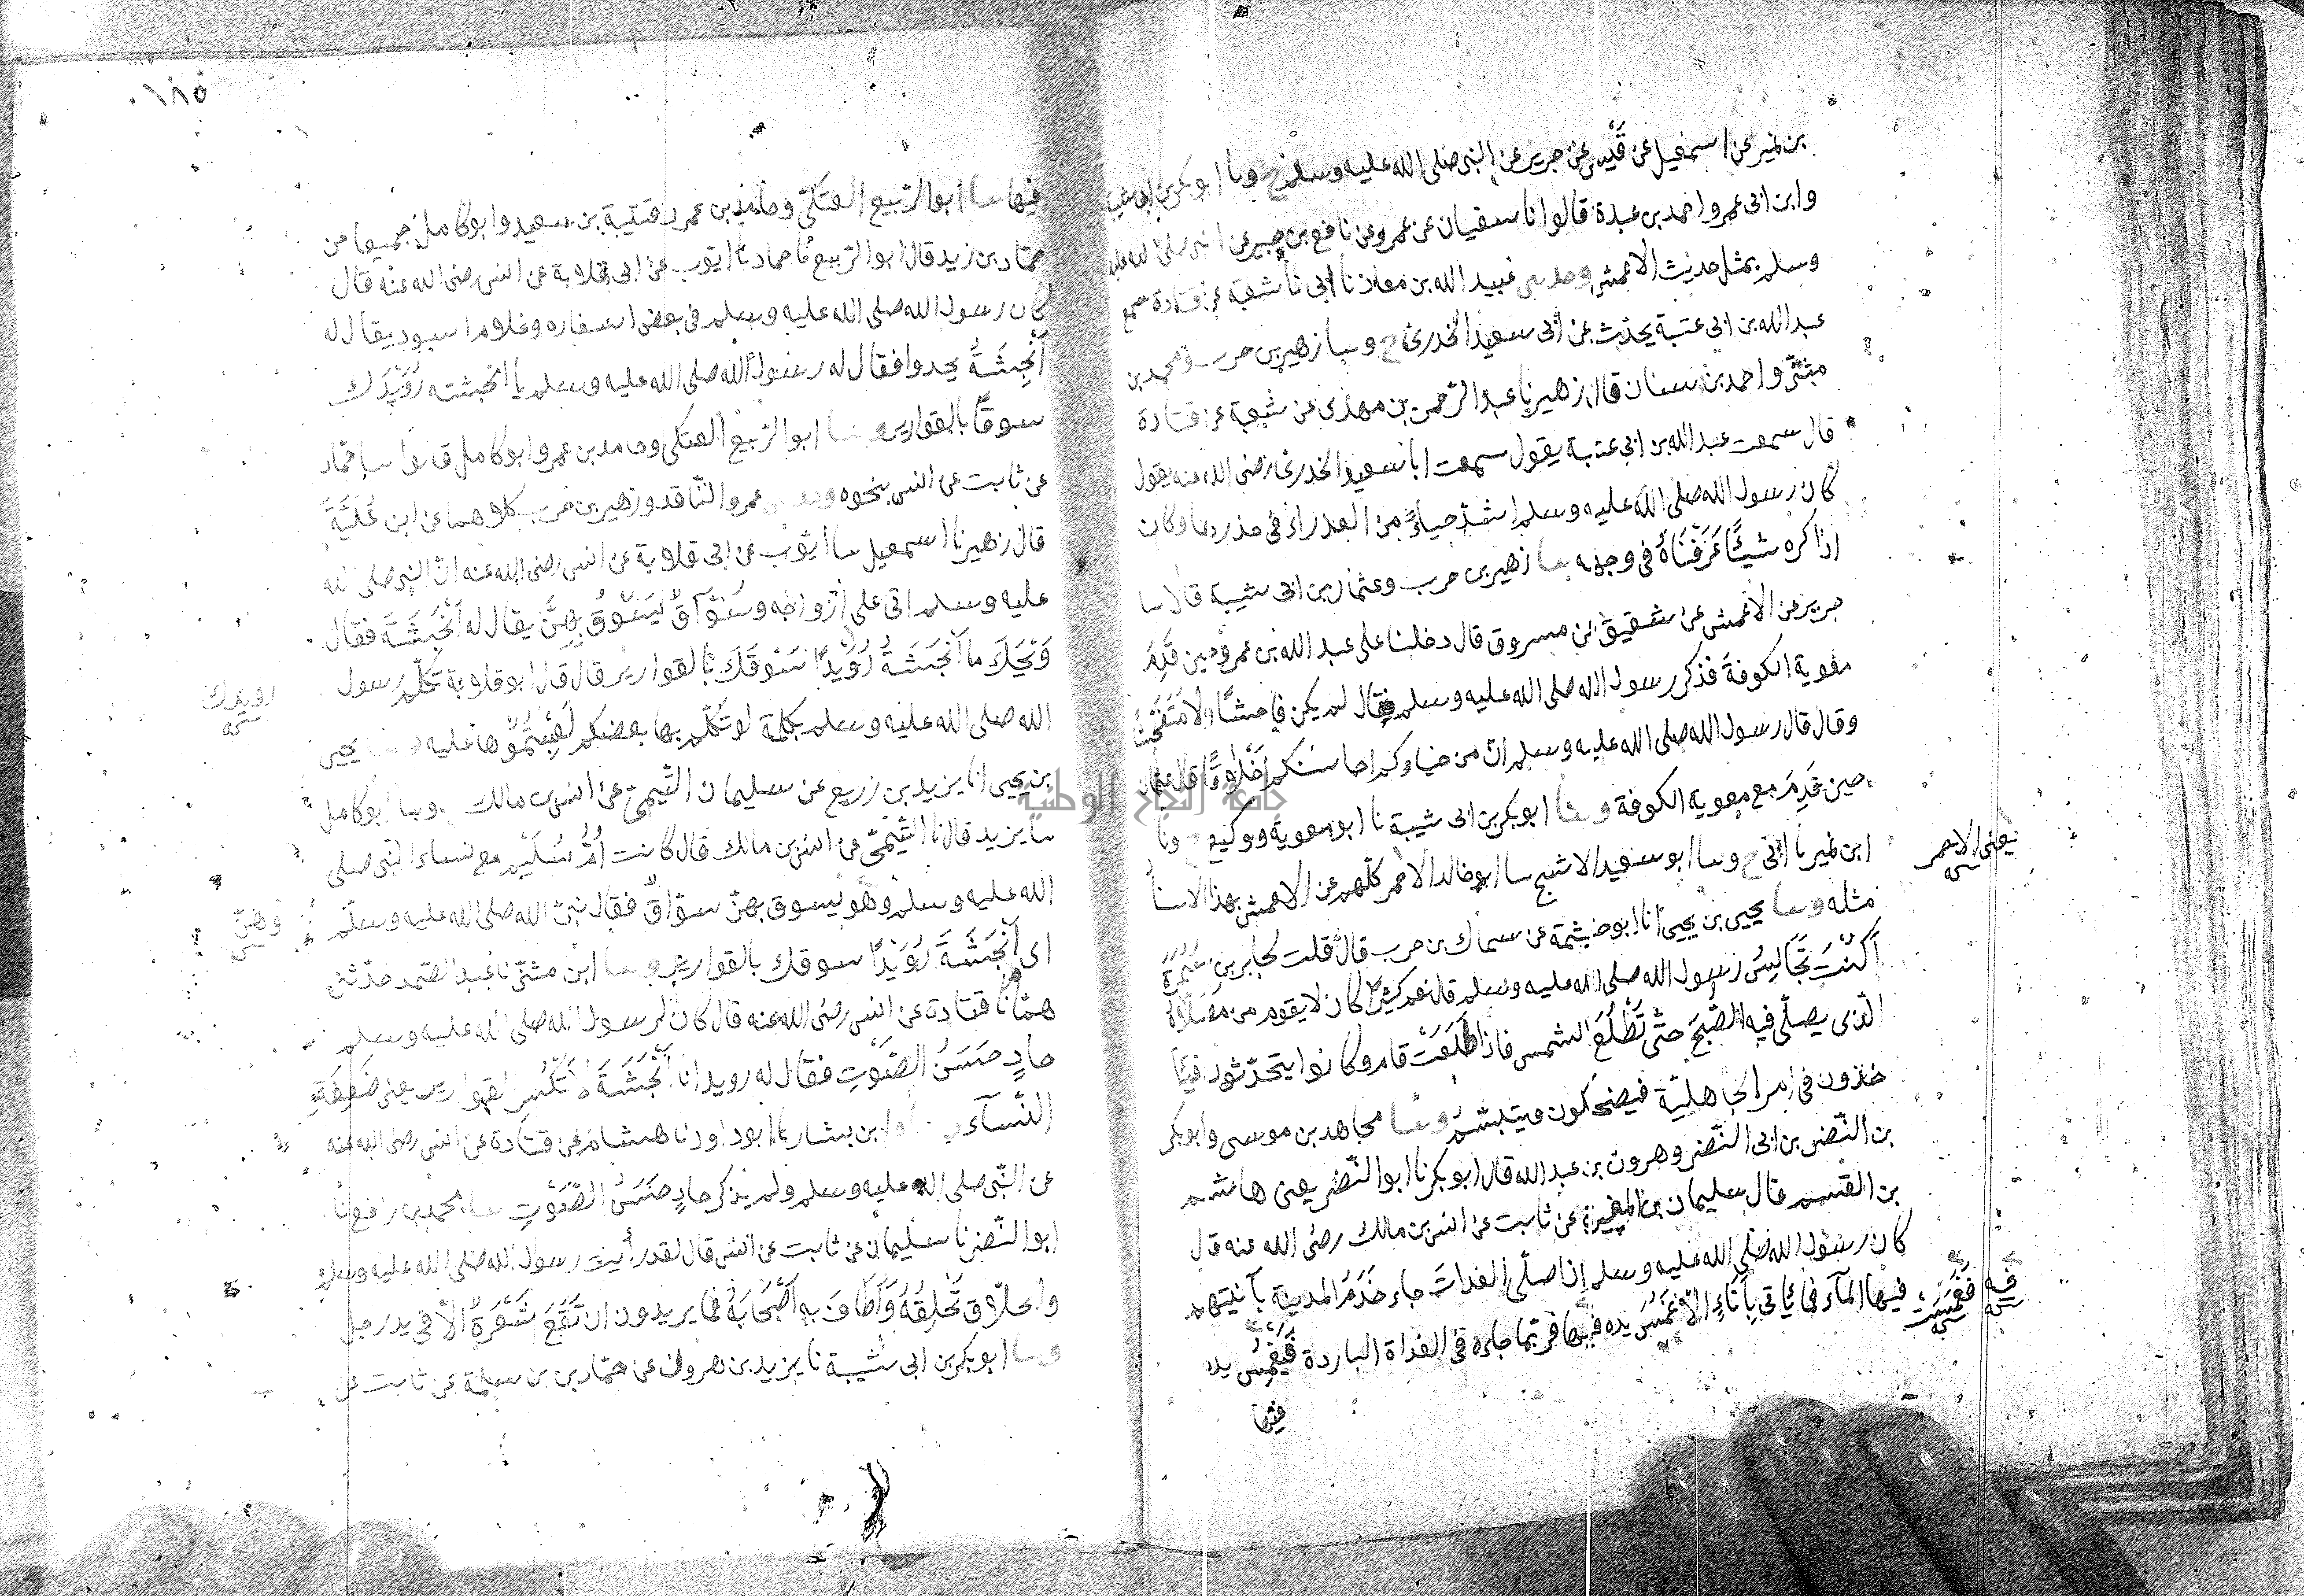 بن نمير عن اسمعيل عن قيس عن جرير عن النبي صلى الله عليه وسلم ح ونا ابو بكر بن ابي شيبة
وابن ابي عمر واحمد بن عبدة قالوا نا سفيان عن عمرو عن نافع بن جبير عن النبي صلى الله عليه
وسلم بمثل حديث الاعمش وحدثني عبيد الله بن معاذ نا ابي نا شعبة عن قتادة سمع
عبد الله بن ابي عتبة يحدّث عن ابي سعيد الخدري ح وسا زهير بن حرب ومحمد بن
مثنّى واحمد بن سنان قال زهير نا عبد الرّحمن بن مهدي عن شعبة عن قتادة
قال سمعت عبد الله بن ابي عتبة يقول سمعت ابا سعيد الخدري رضى الله عنه يقول
كان رسول الله صلى الله عليه وسلم اشدّ حياءً من العذراء في خدرها وكان
اذا كره شيئًا عَرَفْنَاهُ في وجهه سا زهير بن حرب وعثمان بن ابي شيبة قالا سا
جرير عن الاعمش عن شقيق عن مسروق قال دخلنا على عبد الله بن عمرو حين قَدِمَ
معوية الكوفة فذكر رسول الله صلى الله عليه وسلم فقال لم يكن فاحشًا ولا مُتَفَحِّشًا
وقال قال رسول الله صلى الله عليه وسلم انّ من خياركم احاسنكم اخلاقًا قال عثمان
حين قَدِمَ مع معوية الكوفة وسا ابو بكر بن ابي شيبة نا ابو معوية ووكيع ح ونا
ابن نمير نا ابي ح وسا ابو سعيد الاشج سا ابو خالد الاحمر كلّهم عن الاعمش بهذا الاسنا
يعني الاحمر
مثله وسا يحيى بن يحيى انا ابو خيثمة عن سماك بن حرب قال قلت لجابر بن سَمُرَةَ
أكُنْتَ تُجَالِسُ رسول الله صلى الله عليه وسلم قال نعم كثيرًا كان لا يقوم من مصلّاه
الّذي يصلّي فيه الصُّبحَ حتّى تَطْلُعَ الشمس فاذا طَلَعَتْ قام وكانوا يتحدّثون فيأ
خذون في امر الجاهليّة فيضحكون ويتبسّم وسا مجاهد بن موسى وابو بكر
بن النّضر بن ابي النّضر وهرون بن عبد الله قال ابو بكر نا ابو النّضر يعني هاشم
بن القسم قال سليمان بن المغيرة عن ثابت عن انس بن مالك رضى الله عنه قال
كان رسول الله صلى الله عليه وسلم اذا صلّى الغداة جاء خَدَمُ المدينة بآنيتهم
فيها المآء فما يُاتى بِاِنَاءٍ الّا غَمَسَ يده فيها فربّما جاءه في الغداة الباردة فَيَغْمِسُ يده
فيه
فيها
١٨٥
فيها سا ابو الرّبيع العتكيّ وحامد بن عمر وقتيبة بن سعيد وابو كامل جميعا عن
حمّاد بن زيد قال ابو الرّبيع نا حماد نا ايّوب عن ابي قلابة عن انس رضى الله عنه قال
كان رسول الله صلى الله عليه وسلم في بعض اسفاره وغلام اسود يقال له
أَنْجَشَةُ يحدوا فقال له رسول الله صلى الله عليه وسلم يا انجشته رُوَيْدَك
سوقًا بالقوارير وسا ابو الرّبيع العتكي وحامد بن عمر وابو كامل قالوا سا حمّاد
عن ثابت عن انس بنحوه وحدثني عمرو النّاقد وزهير بن حرب كلاهما عن ابن عُلَيَّةَ
قال زهير نا اسمعيل سا ايّوب عن ابي قلابة عن انس رضى الله عنه انّ النبي صلى الله
عليه وسلم اتى على ازواجه وسَوَّاقٌ يَسُوقُ بِهِنَّ يقال له أَنْجَشَةَ فقال
وَيْحَكَ يا أَنْجَشَةُ رُوَيْدًا سَوْقَكَ بالقوارير قال قال ابو قلابة تكلّم رسول
رويدك
الله صلى الله عليه وسلم بكلمة لو تكلّم بها بعضكم لَعِبْتُمُوها عليه وسا يحيى
بن يحيى انا يزيد بن زريع عن سليمان التّيميّ عن انس بن مالك وسا ابو كامل
سا يزيد قال نا التّيميّ عن انس بن مالك قال كانت أُمُّ سُلَيْمٍ مع نساء النّبي صلى
الله عليه وسلم وهو يسوق بهنّ سوّاقٌ فقال نبيّ الله صلى الله عليه وسلّم
وهنّ
اى أَنْجَشَةَ رُوَيْدًا سوقك بالقوارير وسا ابن مثنّى نا عبد الصّمد حدّثني
همّام نا قتادة عن انس رضى الله عنه قال كان لرسول الله صلى الله عليه وسلم
حادٍ حَسَنُ الصَّوْتِ فقال له رويدا نا أَنْجَشَةَ لا تَكْسِرِ القوارير يعني ضَعَفَةِ
النّسآء وسا ابن بشار نا ابو داود نا هشام عن قتادة عن انس رضى الله عنه
عن النّبي صلى الله عليه وسلم ولم يذكر حادٍ حَسَنُ الصَّوْتِ سا محمد بن رافع نا
ابو النّضر نا سليمان عن ثابت عن انس قال لقد رأيت رسول الله صلى الله عليه وسلم
والحلّاق تَحْلِقُهُ وَأَطَافَ بِهِ أَصْحَابُهُ فما يريدون ان تَقَعَ شَعْرَةٌ الّا في يد رجل
وسا ابو بكر بن ابي شيبة نا يزيد بن هرون عن حمّاد بن سلمة عن ثابت عن